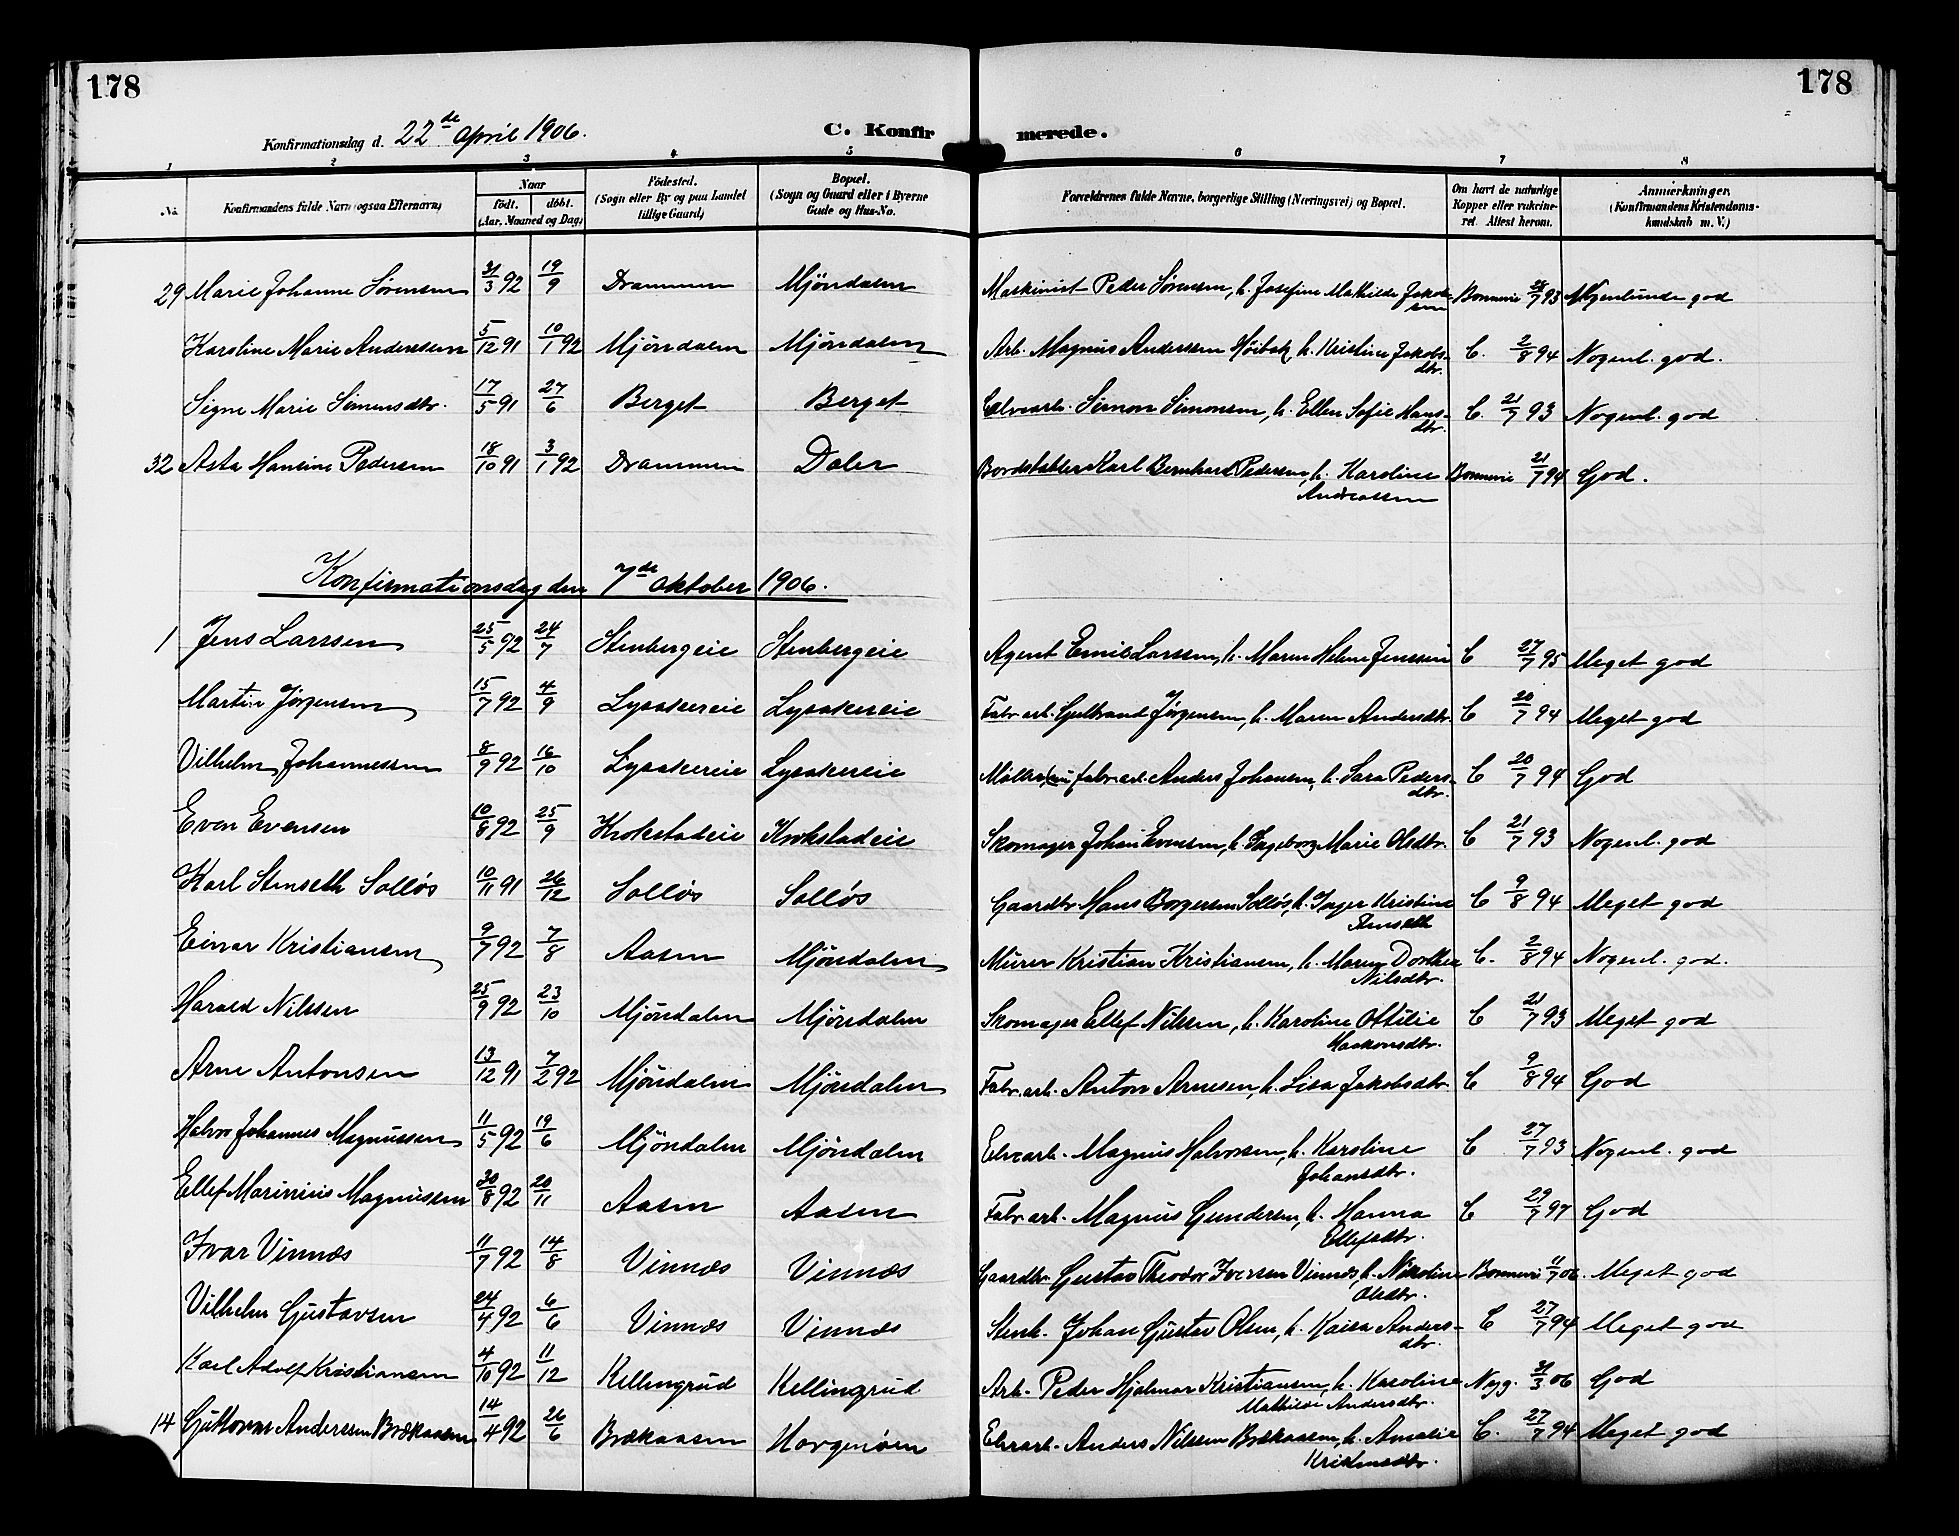 178
178
Konfirmationsdag d. 22de April 1906.
C. Konfirmerede.
1 2 3 4 5 6 7 8
No.
Konfirmandens fulde Navn (ogsaa Efternavn)
Naar
født. døbt.
(Aar, Maaned og Dag)
Fødested.
(Sogn eller By og paa Landet tillige Gaard)
Bopæl.
(Sogn og Gaard eller i Byerne Gade og Hus-No.
Forældrenes fulde Navne, borgerlige Stilling (Næringsvei) og Bopæl.
Om havt de naturlige Kopper eller vakcineret. Attest herom.
Anmærkninger.
(Konfirmandens Kristendomskundskab m. V.)
29 Marie Johanne Sørensen 31/3 92 19/9 Drammen Mjöndalen Maskinist Peder Sørensen, h. Josefine Mathilde Jakobsen Bonnevie 28/7 93 Nogenlunde god
Karoline Marie Anderssen 5/12 91 10/1 92 Mjöndalen Mjöndalen Arb. Magnus Anderssen Höibak, h. Kristine Jakobsdtr. C. 2/8 94 Nogenl. god.
Signe Marie Simensdtr. 17/5 91 27/6 Berget Berget Elvearb. Simon Simonsen, h. Ellen Sofie Hansdtr. C. 21/7 93 Nogenl. god
32 Asta Hansine Pedersen 18/10 91 3/1 92 Drammen Daler Bordstabler Karl Bernhard Pedersen, h. Karoline Andreassen Bonnevie 21/7 94 God.
Konfirmationsdag den 7de oktober 1906.
1 Jens Larssen 25/5 92 24/7 Stenbergeie Stenbergeie Agent Emil Larssen, h. Maren Helene Jenssen C 27/7 95 Meget god
Martin Jørgensen 15/7 92 4/9 Lysakereie Lysakereie Fabr. arb. Gulbrand Jørgensen, h. Maren Andersdtr. C 20/7 94 Meget god
Vilhelm Johannessen 8/9 92 16/10 Lysakereie Lysakereie fabr. arb. Anders Johansen, h. Sara Pedersdtr. C 20/7 94 God
Even Evensen 10/8 92 25/9 Krokstadeie Krokstadeie Skomager Johan Evensen, h. Ingeborg Marie Olsdtr. C 21/7 93 Nogenl. god
Karl Stenseth Solløs 10/11 91 26/12 Solløs Solløs Gaardbr. Hans Borgersen Solløs, h. Inger Kristine Stenseth C 9/8 94 Meget god
Einar Kristiansen 9/7 92 7/8 Aasen Mjöndalen Murer Kristian Kristiansen, h. Maren Dorthea Nilsdtr. C. 2/8 94 Nogenl. god.
Harald Nilssen 25/9 92 23/10 Mjöndalen Mjöndalen Skomager Ellef Nilssen, h. Karoline Ottilie Haakonsdtr. C 21/7 93 Meget god
Arne Antonsen 13/12 91 7/2 92 Mjöndalen Mjöndalen Fabr. arb. Anton Arnesen, h. Lisa Jakobsdtr. C 9/8 94 God
Halvor Johannes Magnussen 11/5 92 19/6 Mjöndalen Mjöndalen Elvearb. Magnus Halvorsen, h. Karoline Johansdtr. C 27/7 93 Nogenl. god
Ellef Marinius Magnussen 30/8 92 20/11 Aasen Aasen Fabr. arb. Magnus Gundersen, h. Hanna Ellefsdtr. C 29/7 97 God
Ivar Vinnæs 11/7 92 14/8 Vinnæs Vinnæs Gaardbr. Gustav Theodor Iversen Vinnæs, h. Nikoline Olsdtr. Bonnevie 11/7 06. Meget god
Vilhelm Gustavsen 24/4 92 6/6 Vinnæs Vinnæs Stenh. Johan Gustav Olsen, h. Kaisa Andersdtr. C 27/7 94 Meget god
Karl Adolf Kristiansen 4/10 92 11/12 Kellingrud Kellingrud Arb. Peder Hjalmar Kristiansen, h. Karoline Mathilde Andersdtr. Nyg. 31/3 06 God
14 Guttorm Anderssen Brækaasen 14/4 92 26/6 Brækaasen Horgenøen Elvearb. Anders Nilssen Brækaasen, h. Amalie Kristensdtr. C. 27/7 94 Meget god